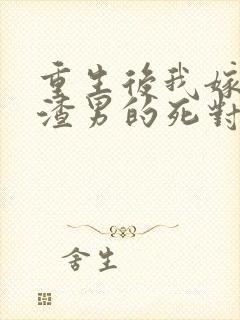 重生後我嫁
渣男的死對
舍生